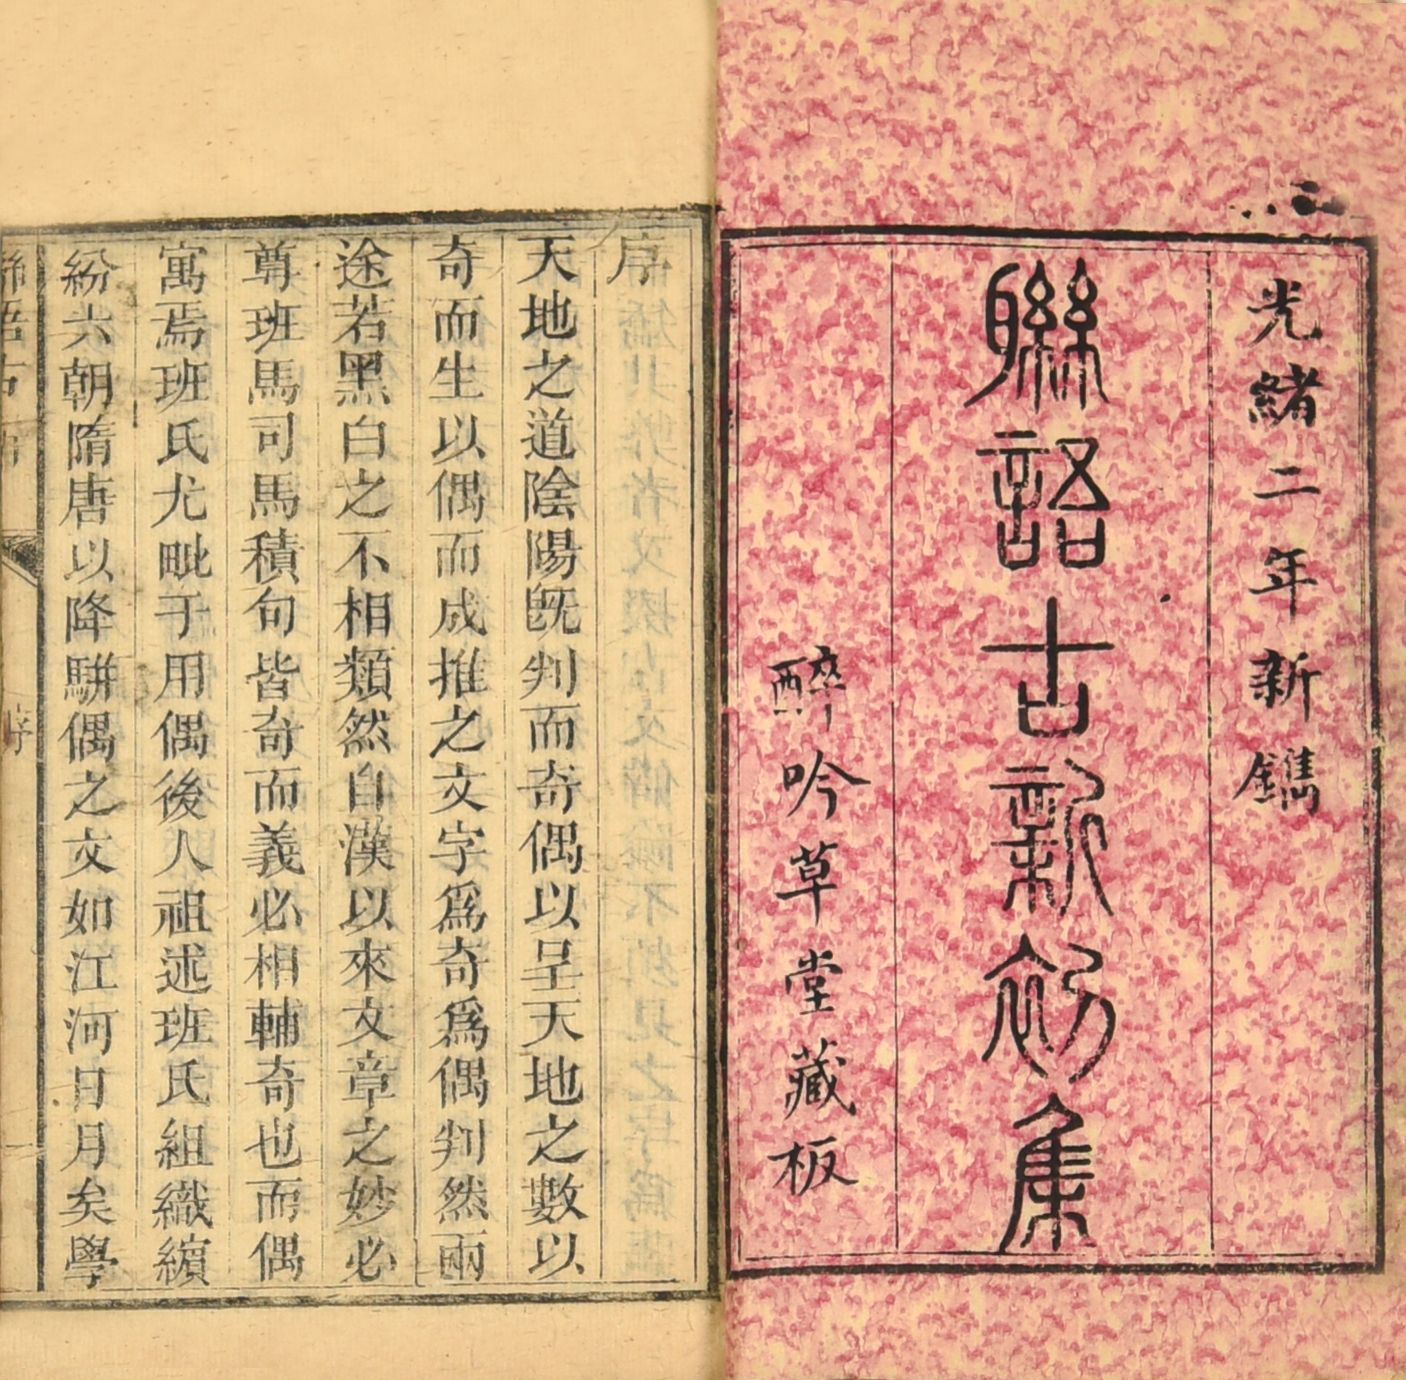 光緒二年新鐫
聯語古新初集
醉吟草堂藏板
序
天地之道陰陽既判而奇偶以呈天地之數以
奇而生以偶而成推之文字爲奇爲偶判然兩
途若黑白之不相類然自漢以來文章之妙必
尊班馬司馬積句皆奇而義必相輔奇也而偶
寓焉班氏尤毗于用偶後人祖述班氏組織繽
紛六朝隋唐以降駢偶之文如江河日月矣學
聯語古
序
一